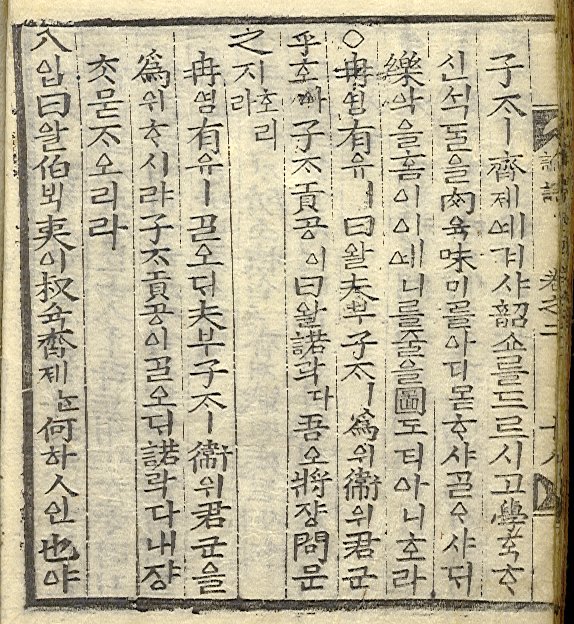 論語 卷之二 十八
子ᄌᆞㅣ齊졔예겨샤韶쇼를드르시고學ᄒᆞᆨᄒᆞ
신석ᄃᆞᆯ을肉육味미를아디몯ᄒᆞ샤ᄀᆞᆯᄋᆞ샤ᄃᆡ
樂악을홈이이예니를줄을圖도티아니호라
○冉염有유ㅣ曰왈夫부子ᄌᆞㅣ爲위衛위君군
乎호아子ᄌᆞ貢공이曰왈諾락다吾오將쟝問문
之지호리라
冉염有유ㅣᄀᆞᆯ오ᄃᆡ夫부子ᄌᆞㅣ衛위君군을
爲위ᄒᆞ시랴子ᄌᆞ貢공이ᄀᆞᆯ오ᄃᆡ諾락다내쟝
ᄎᆞᆺ묻ᄌᆞ오리라
入입曰왈伯ᄇᆡᆨ夷이叔슉齊졔ᄂᆞᆫ何하人인也야